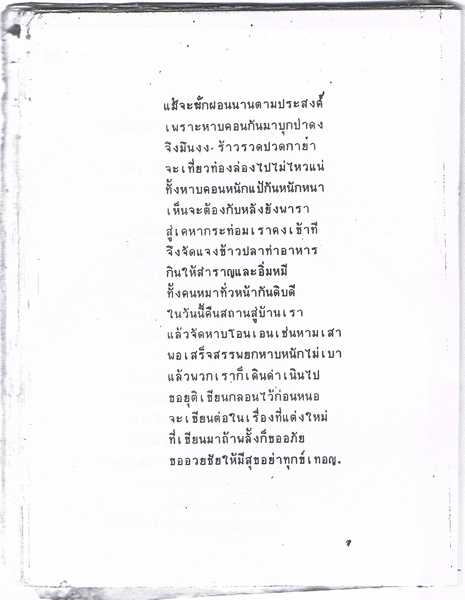 แม้จะพักผอนนานตามประสงค์
เพราะหาบคอนกันมาบุกป่าดง
จึงมึนงง ร้าวรวดปวดกายา
จะเที่ยวท่องล่องไปไม่ไหวแน่
ทั้งหาบคอนหนักแป้กันหนักหนา
เห็นจะต้องกับหลังยังพารา
สู่เคหากระท่อมเราคงเข้าที
จึงจัดแจงข้าวปลาทำอาหาร
กินให้สำราญและอิ่มหมี
ทั้งคนหมาทั่วหน้ากันดิบดี
ในวันนี้คืนสถานสู่บ้านเรา
แล้วจัดหาบโอนเอนเช่นหามเสา
พอเสร็จสรรพยกหาบหนักไม่เบา
แล้วพวกเราก็เดินดำเนินไป
ขอยุติเขียนกลอนไว้ก่อนหนอ
จะเขียนต่อในเรื่องที่แต่งใหม่
ที่เขียนมาถ้าพลั้งก็ขออภัย
ขออวยชัยให้มีสุขอย่าทุกข์เทอญ.